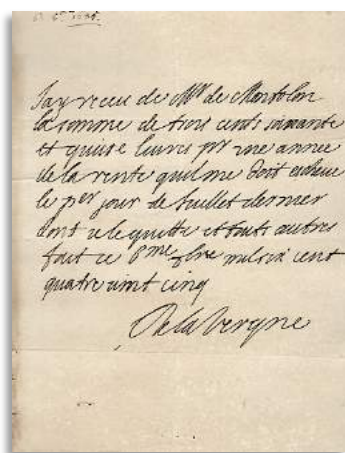 J'ay receu de Mr de Montolon
la somme de trois cents soixante
et quinse livres pr une annee
de la rente quil me doit escheue
le per jour de Juillet dernier
dont je le quitte et touts autres
fait ce 8me 7bre mil six cent
quatre vint cinq
De la Vergne